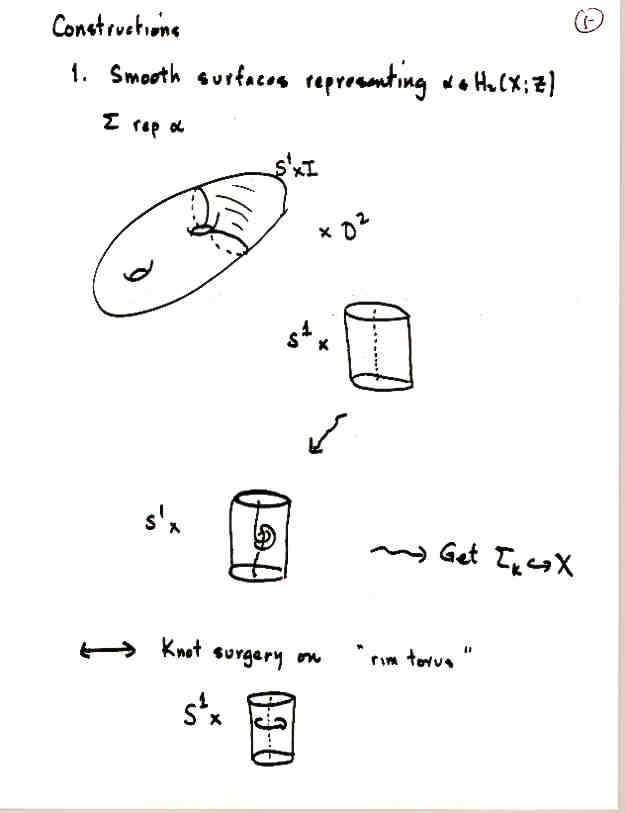 Constructions
1. Smooth surfaces representing α ∈ H₂(X; ℤ)
Σ rep α
S¹×I
× D²
S¹ ×
S¹ ×
⟿ Get Σ_K ↪ X
⟷ Knot surgery on "rim torus"
S¹ ×